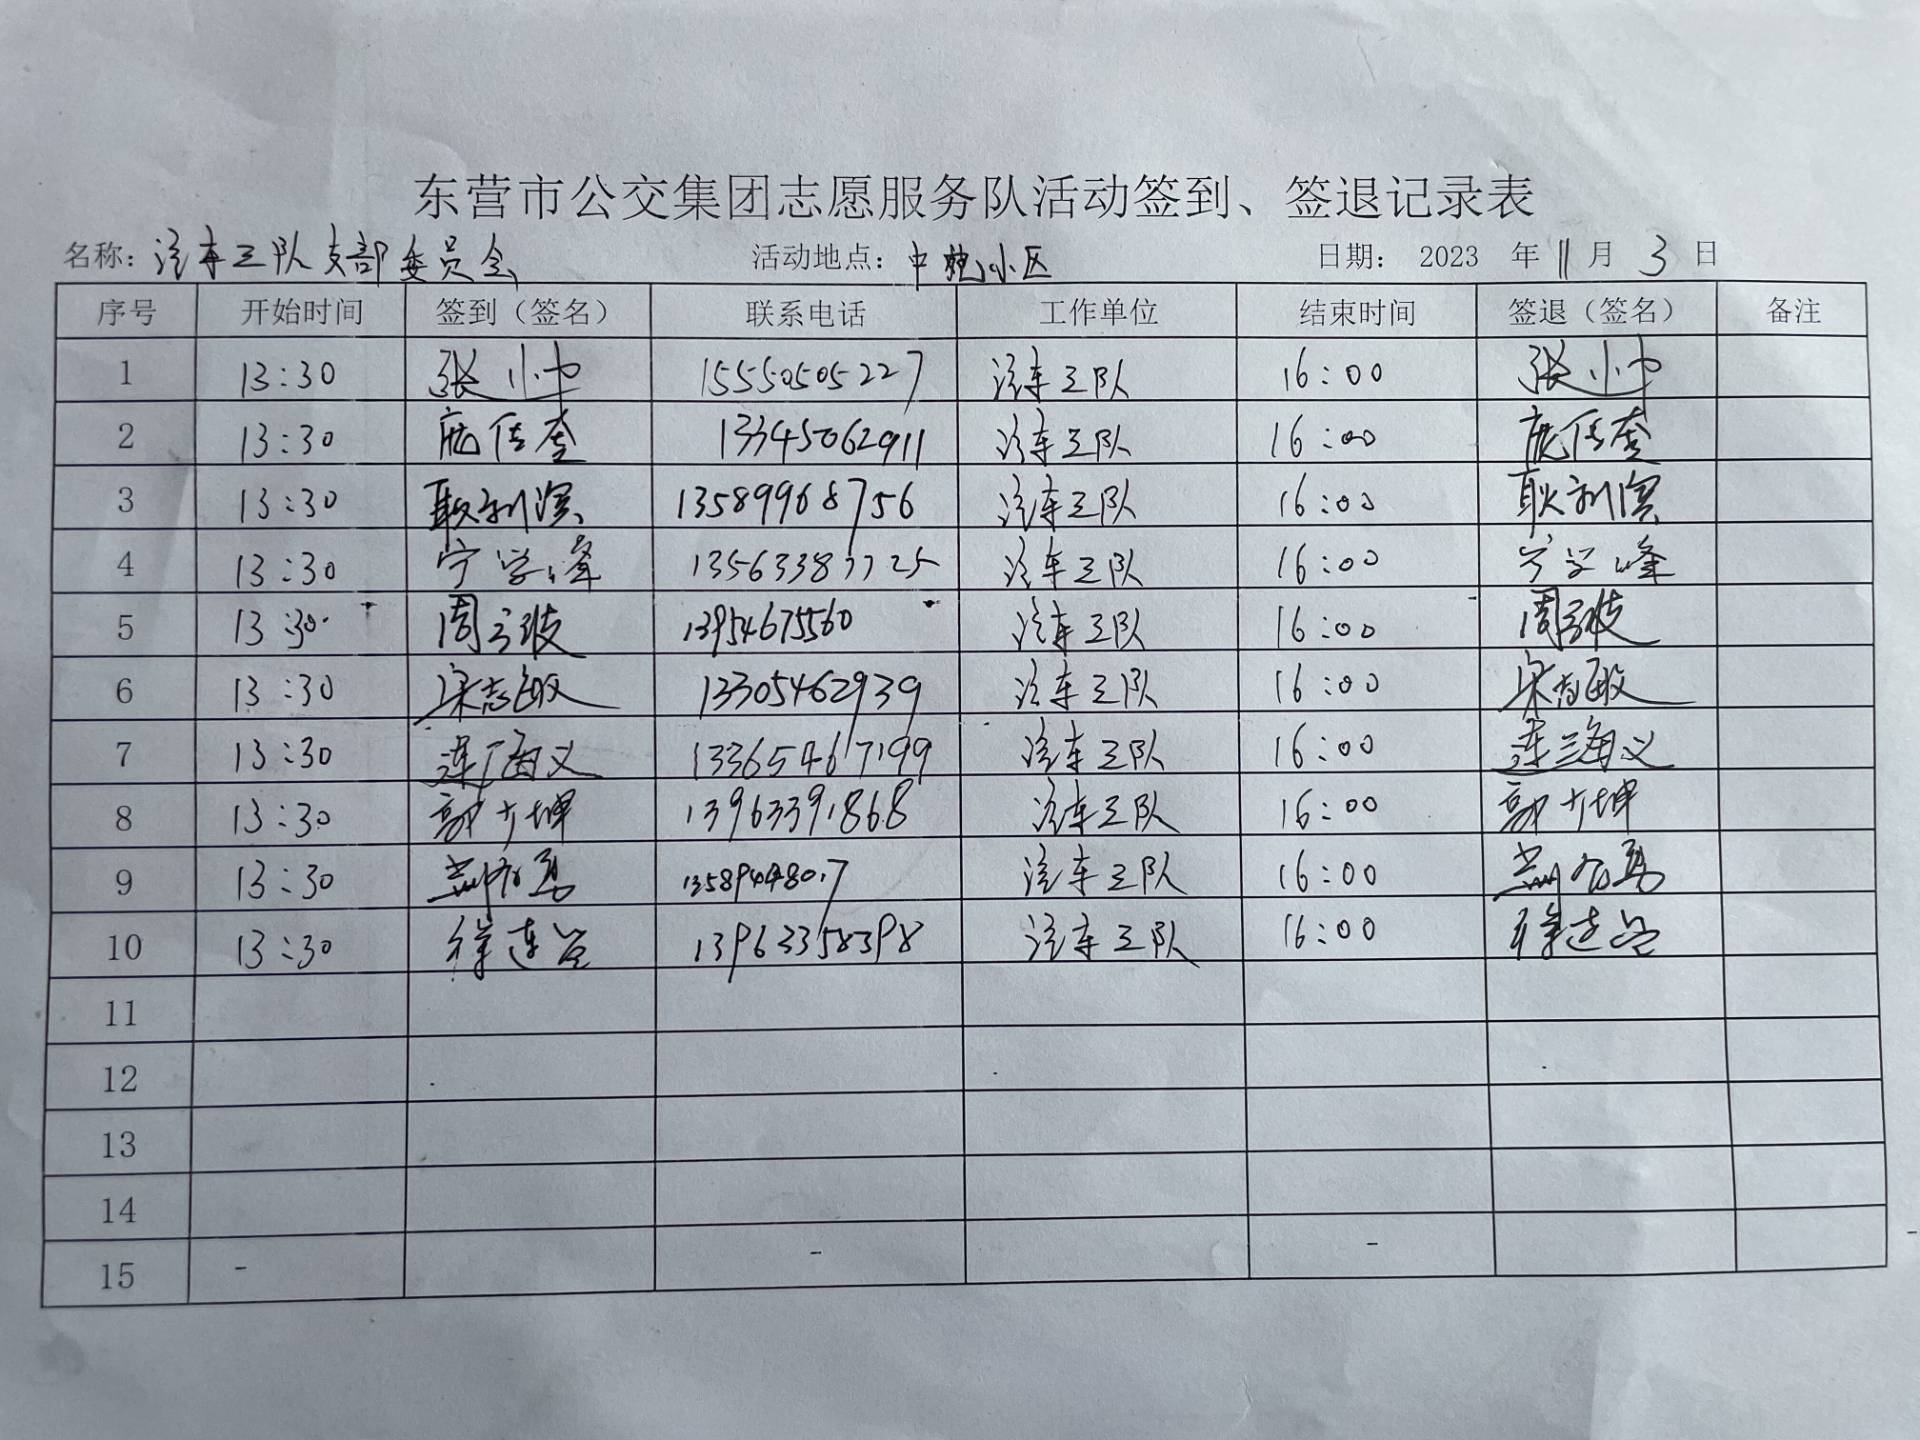 东营市公交集团志愿服务队活动签到、签退记录表
名称：汽车三队支部委员会 活动地点：中苑小区 日期： 2023 年 11 月 3 日
序号 开始时间 签到（签名） 联系电话 工作单位 结束时间 签退（签名） 备注
1 13:30 张小中 15550505227 汽车三队 16:00 张小中
2 13:30 庞传奎 13345062911 汽车三队 16:00 庞传奎
3 13:30 耿利滨 13589968756 汽车三队 16:00 耿利滨
4 13:30 宁学峰 13563387725 汽车三队 16:00 宁学峰
5 13:30 周 13954675560 汽车三队 16:00 周
6 13:30 宋志敏 13305462939 汽车三队 16:00 宋志敏
7 13:30 连海义 13365467199 汽车三队 16:00 连海义
8 13:30 郭少坤 13963391868 汽车三队 16:00 郭少坤
9 13:30 13589448017 汽车三队 16:00
10 13:30 徐连 13963358398 汽车三队 16:00 徐连
11
12
13
14
15